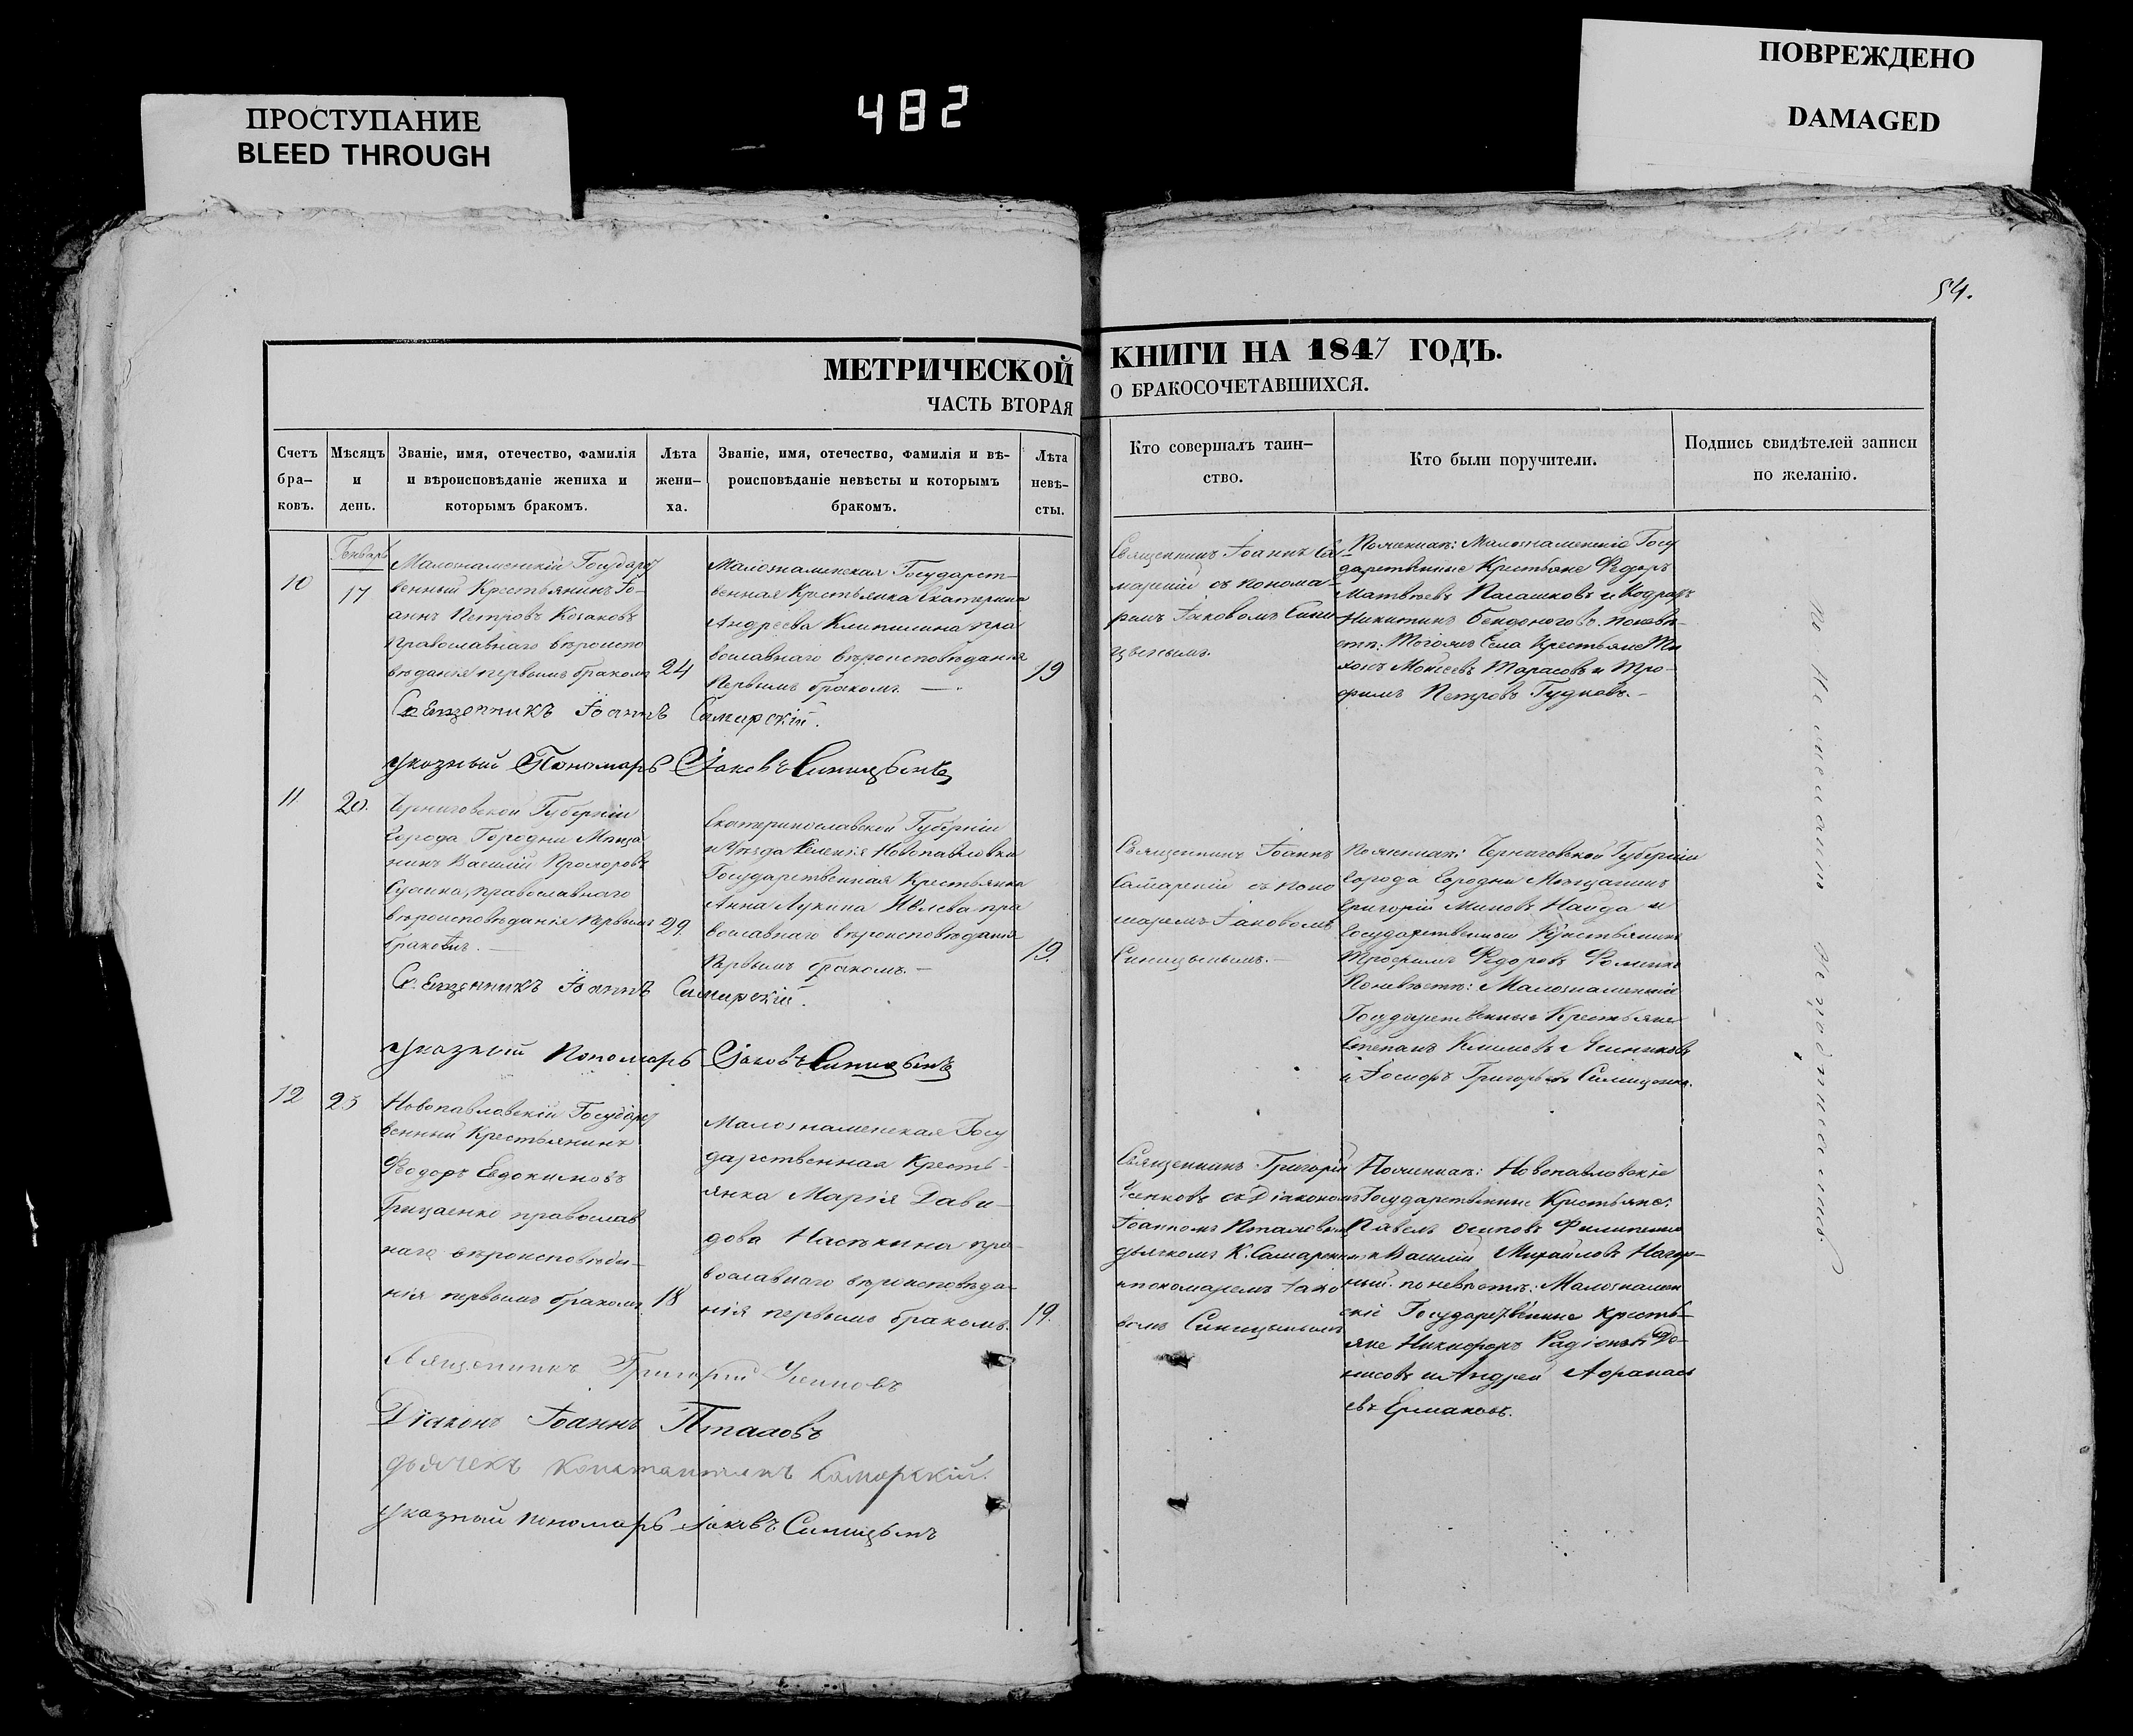 ПРОСТУПАНИЕ
BLEED THROUGH
482
ПОВРЕЖДЕНО
DAMAGED
54.
МЕТРИЧЕСКОЙ КНИГИ НА 1847 ГОДЪ.
ЧАСТЬ ВТОРАЯ О БРАКОСОЧЕТАВШИХСЯ.
Счетъ
бра-
ковъ.
Мѣсяцъ
и
день.
Званіе, имя, отечество, фамилія
и вѣроисповѣданіе жениха и
которымъ бракомъ.
Лѣта
жени-
ха.
Званіе, имя, отечество, фамилія и вѣ-
роисповѣданіе невѣсты и которымъ
бракомъ.
Лѣта
невѣ-
сты.
Кто совершалъ таин-
ство.
Кто были поручители.
Подпись свидѣтелей записи
по желанію.
10
Январь
17
Малознаменскій Государст
венный Крестьянинъ Іо-
аннъ Петровъ Козаковъ
православнаго вѣроиспо
вѣданія первымъ бракомъ
24
Малознаменская Государст-
венная Крестьянка Екатерина
Андреева пра
вославнаго вѣроисповѣданія
первымъ бракомъ. —
19
Священникъ Іоаннъ Са-
марскій съ понома-
ремъ Іаковомъ Сини
цынымъ.
По женихѣ: Малознаменскіе Госу
дарственные Крестьяне Федоръ
Матвѣевъ и
Никитинъ по невѣ-
стѣ: Села Крестьяне Ти
хонъ Моисеевъ Тарасовъ и Тро-
фимъ Петровъ Гудковъ. —
Священникъ Іоаннъ Самарскій.
указный Пономарь Іаковъ Синицынъ
11
20.
Черниговской Губерніи
Города Городни Мѣща
нинъ Василій Прохоровъ
православнаго
вѣроисповѣданія первымъ
бракомъ. —
29
Екатеринославской Губерніи
и Уѣзда селенія Новопавловки
Государственная Крестьянка
Анна Лукина пра
вославнаго вѣроисповѣданія
первымъ бракомъ. —
19.
Священникъ Іоаннъ
Самарскій съ поно
маремъ Іаковомъ
Синицынымъ. —
По женихѣ: Черниговской Губерніи
Города Городни Мѣщанинъ
Григорій Миновъ Найда и
Государственный Крестьянинъ
Трофимъ Федоровъ Фоменко
По невѣстѣ: Малознаменскіе
Государственные Крестьяне
Степанъ Климовъ
и Григорьевъ
Священникъ Іоаннъ Самарскій.
указный Пономарь Іаковъ Синицынъ
12
23
Новопавловскій Государст
венный Крестьянинъ
Феодоръ Евдокимовъ
Грицаенко православ
наго вѣроисповѣда-
нія первымъ бракомъ.
18
Малознаменская Госу
дарственная Кресть-
янка Марія Дави-
дова Насѣкина пра-
вославнаго вѣроисповѣда-
нія первымъ бракомъ.
19.
Священникъ Григорій
Усиковъ съ Діакономъ
Іоанномъ Пталовымъ
дьячкомъ К. Самарскимъ
и пономаремъ Іако
вомъ Синицынымъ
По женихѣ: Новопавловскіе
Государственные Крестьяне:
Павелъ Осиповъ Филипенко
и Василій Михайловъ Нагор-
ный. по невѣстѣ: Малознамен
скіе Государственные Кресть-
яне Никифоръ Радіоновъ Де-
нисовъ и Андрей Афанась
евъ Ермаковъ.
Священникъ Григорій Усиковъ
Діаконъ Іоаннъ Пталовъ
дьячекъ Константинъ Самарскій.
указный пономарь Іаковъ Синицынъ